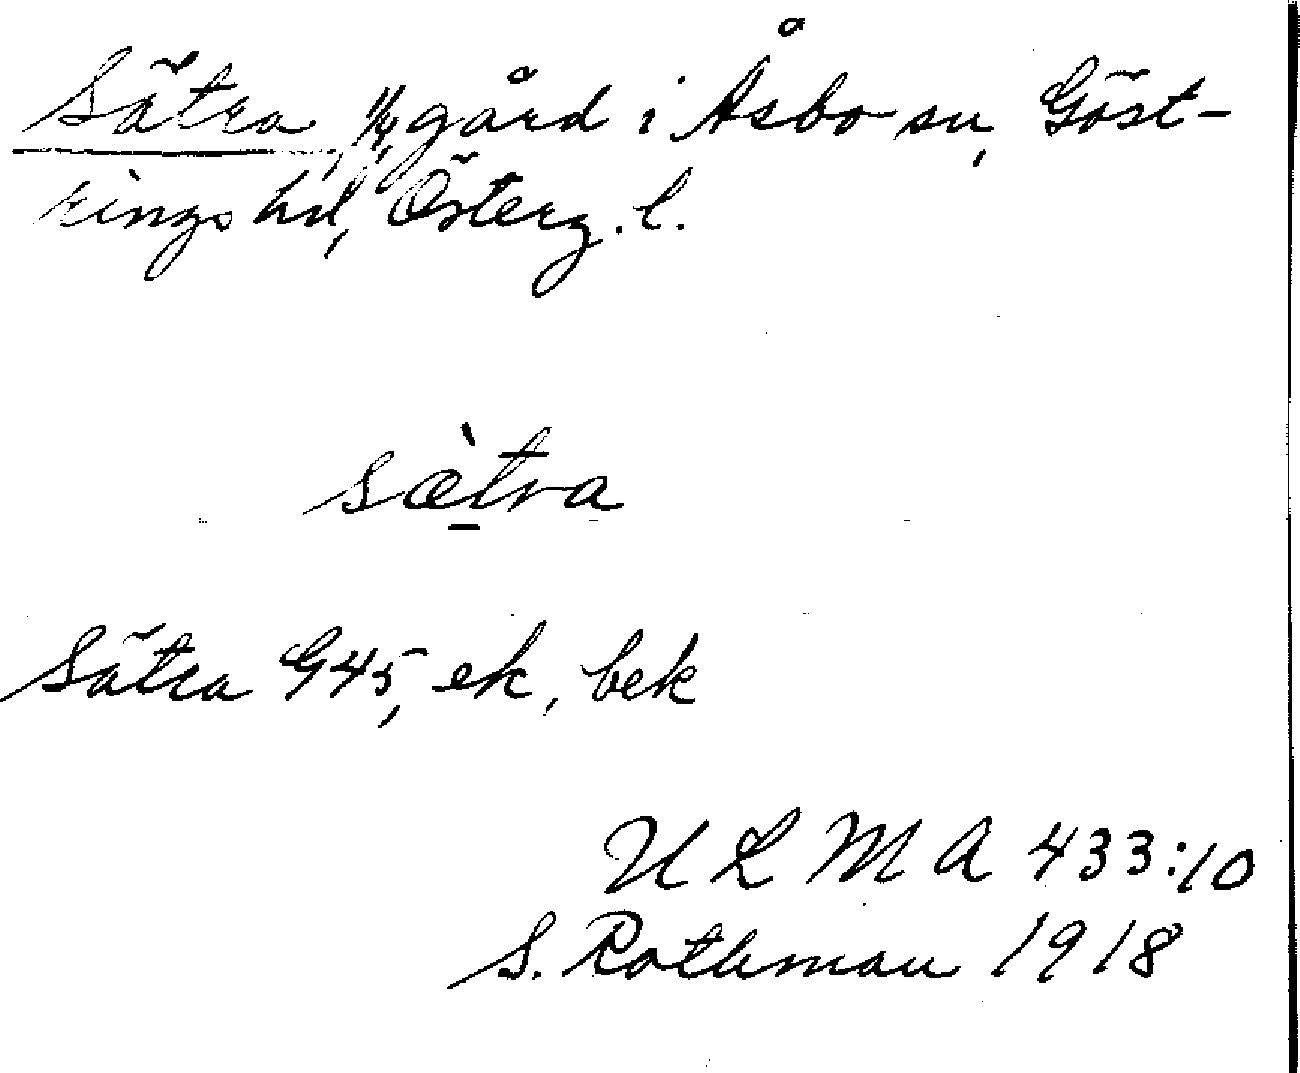 Sätra, 1/4 gård i Åsbo sn, Göst-
rings hd, Österg. l.
sæ̀tra
Sätra G45, ek, bek
ULMA 433:10
S. Rothman 1918